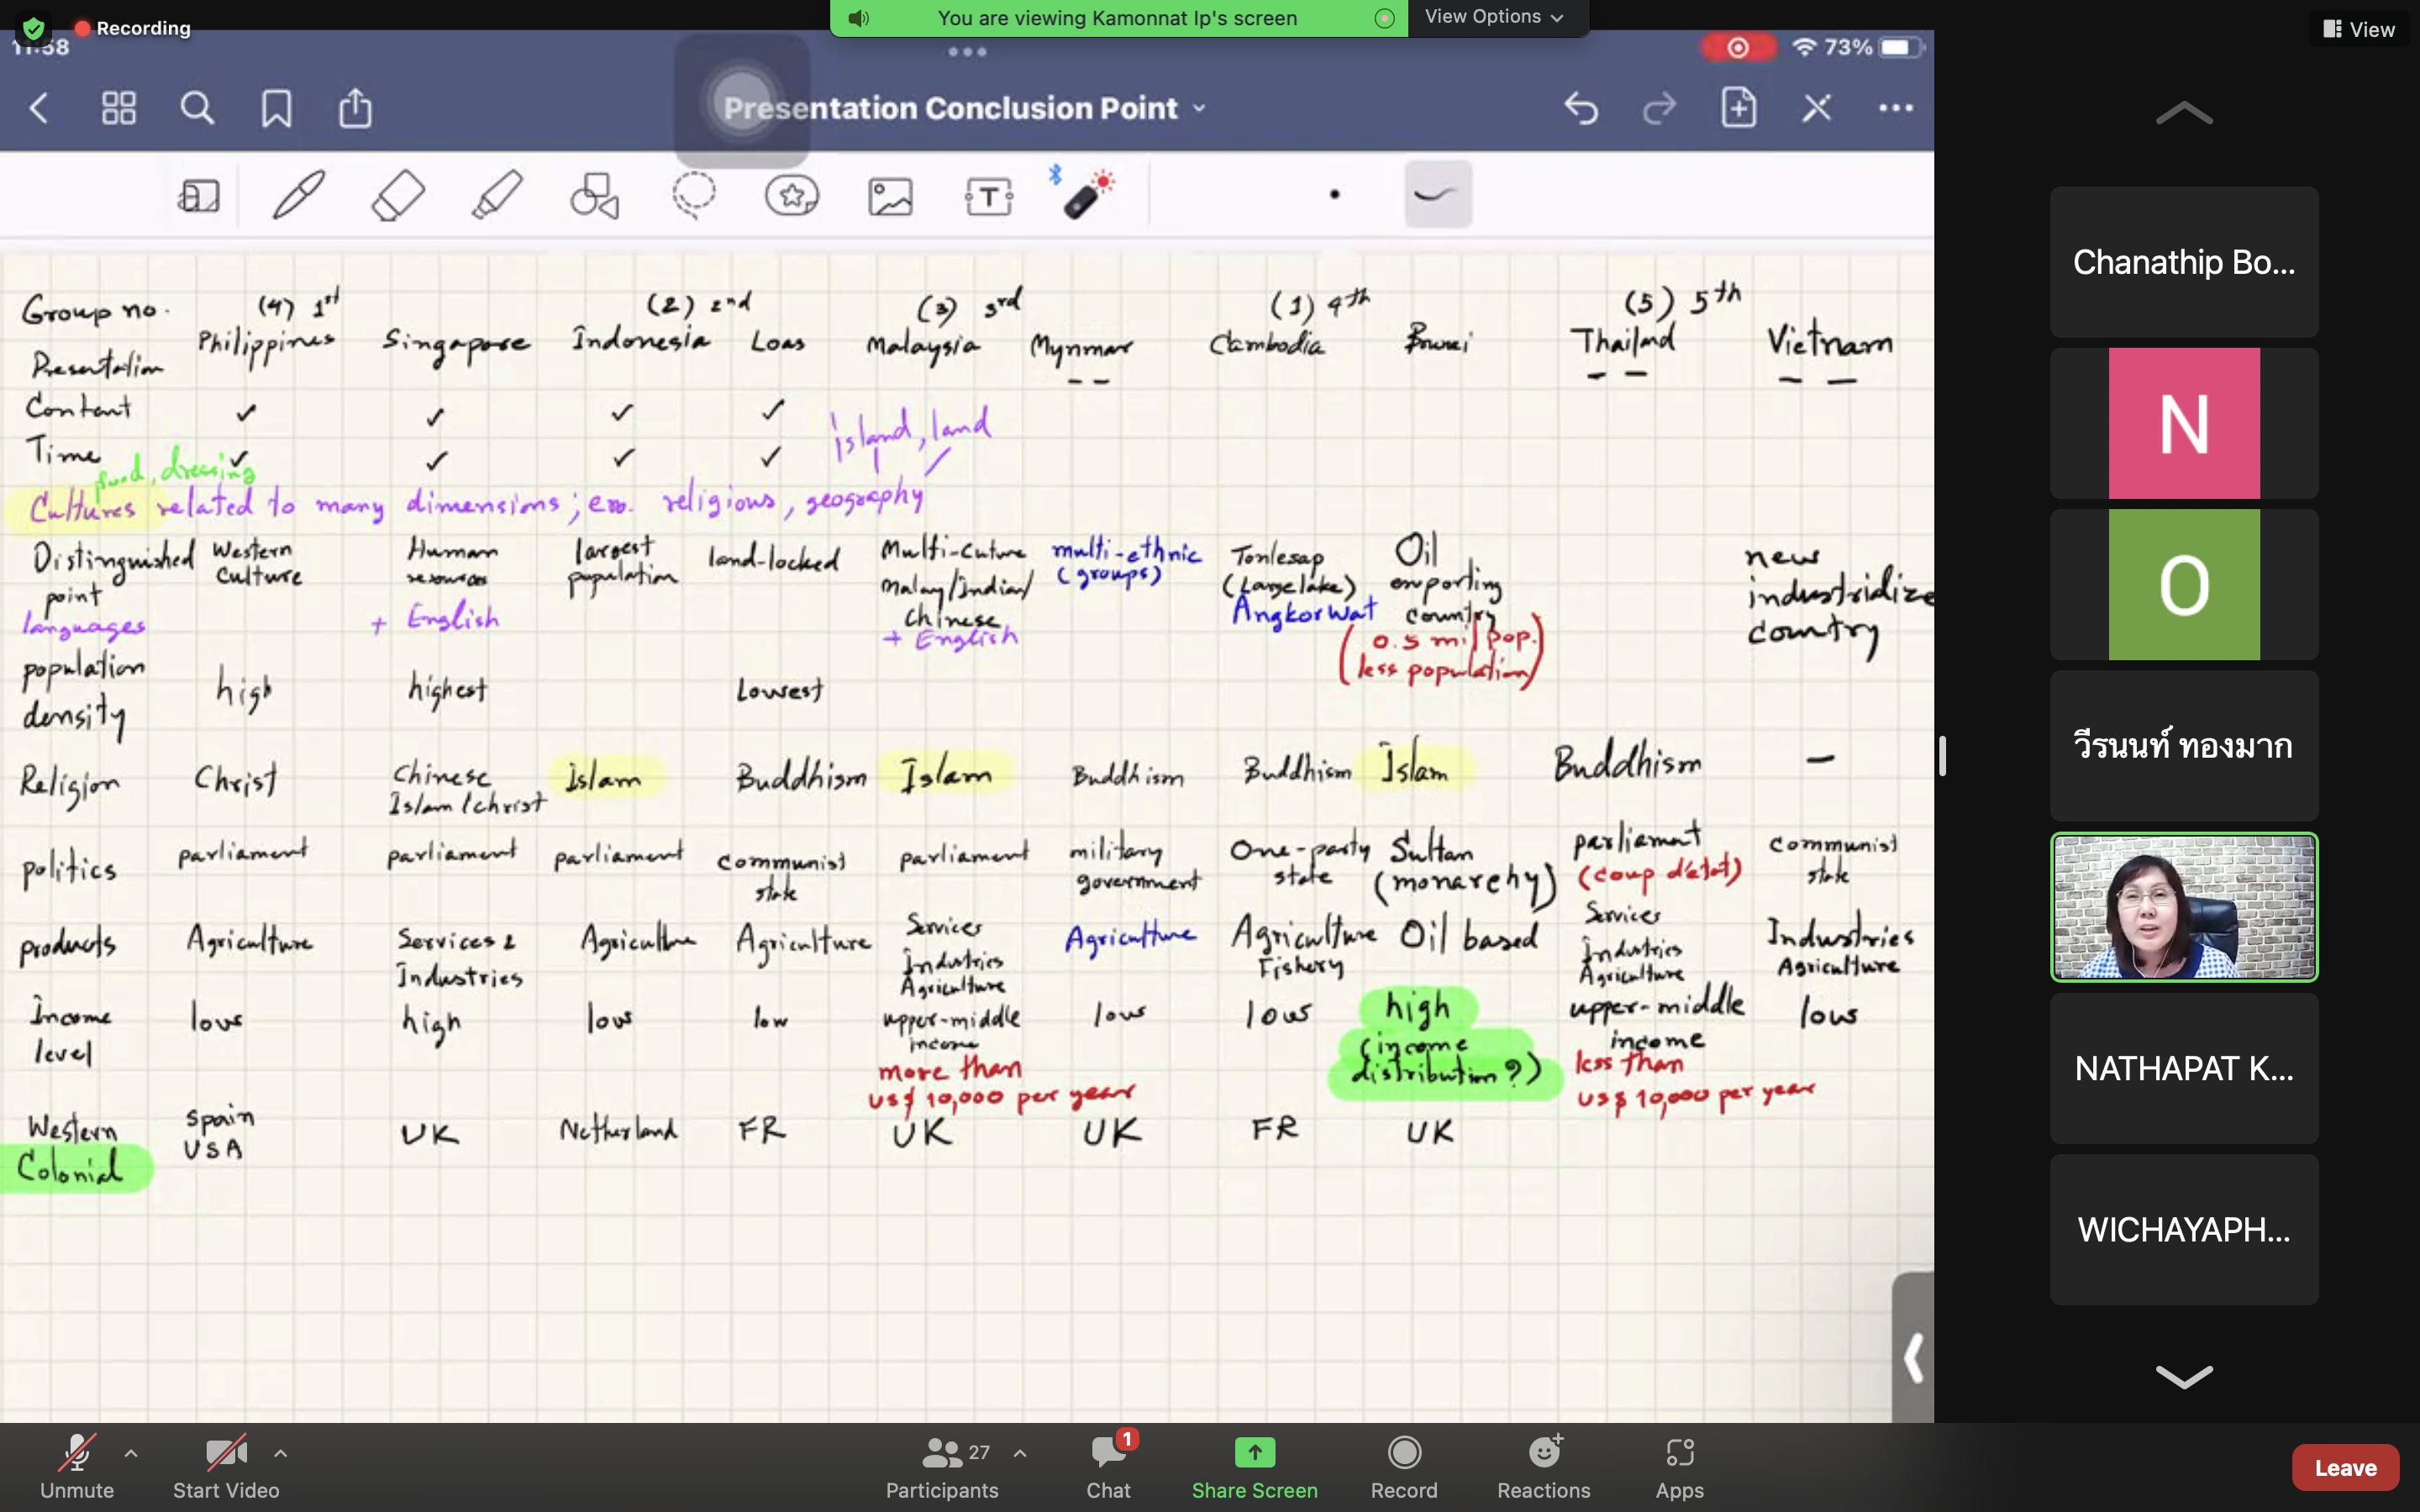 Recording
You are viewing Kamonnat Ip's screen
View Options
View
11:58
73%
Presentation Conclusion Point
Group no. (4) 1st (2) 2nd (3) 3rd (1) 4th (5) 5th
Presentation Philippines Singapore Indonesia Loas Malaysia Mynmar Cambodia Brunei Thailand Vietnam
Content ✓ ✓ ✓ ✓
island, land
Time ✓ ✓ ✓ ✓
food, dressing
Cultures related to many dimensions; ex. religious, geography
Distinguished point
Western culture
Human resources
+ English
largest population
land-locked
Multi-Cuture
Malay/Indian/
Chinese
+ English
multi-ethnic
(groups)
Tonlesap
(Large lake)
Angkor Wat
Oil
exporting
country
(0.5 mil pop.
less population)
new
industrialize
country
languages
population density high highest Lowest
Religion Christ Chinese Islam/christ Islam Buddhism Islam Buddhism Buddhism Islam Buddhism —
politics parliament parliament parliament communist state parliament military government One-party state Sultan (monarchy) parliament (coup d'état) communist state
products Agriculture Services & Industries Agriculture Agriculture Services Industries Agriculture Agriculture Agriculture Fishery Oil based Services Industries Agriculture Industries Agriculture
Income level low high low low upper-middle income low low high (income distribution?) upper-middle income low
more than
US$ 10,000 per year
less than
US$ 10,000 per year
Western Colonial Spain USA UK Netherland FR UK UK FR UK
Chanathip Bo...
N
O
วีรนนท์ ทองมาก
NATHAPAT K...
WICHAYAPH...
Unmute
Start Video
27
Participants
1
Chat
Share Screen
Record
Reactions
Apps
Leave